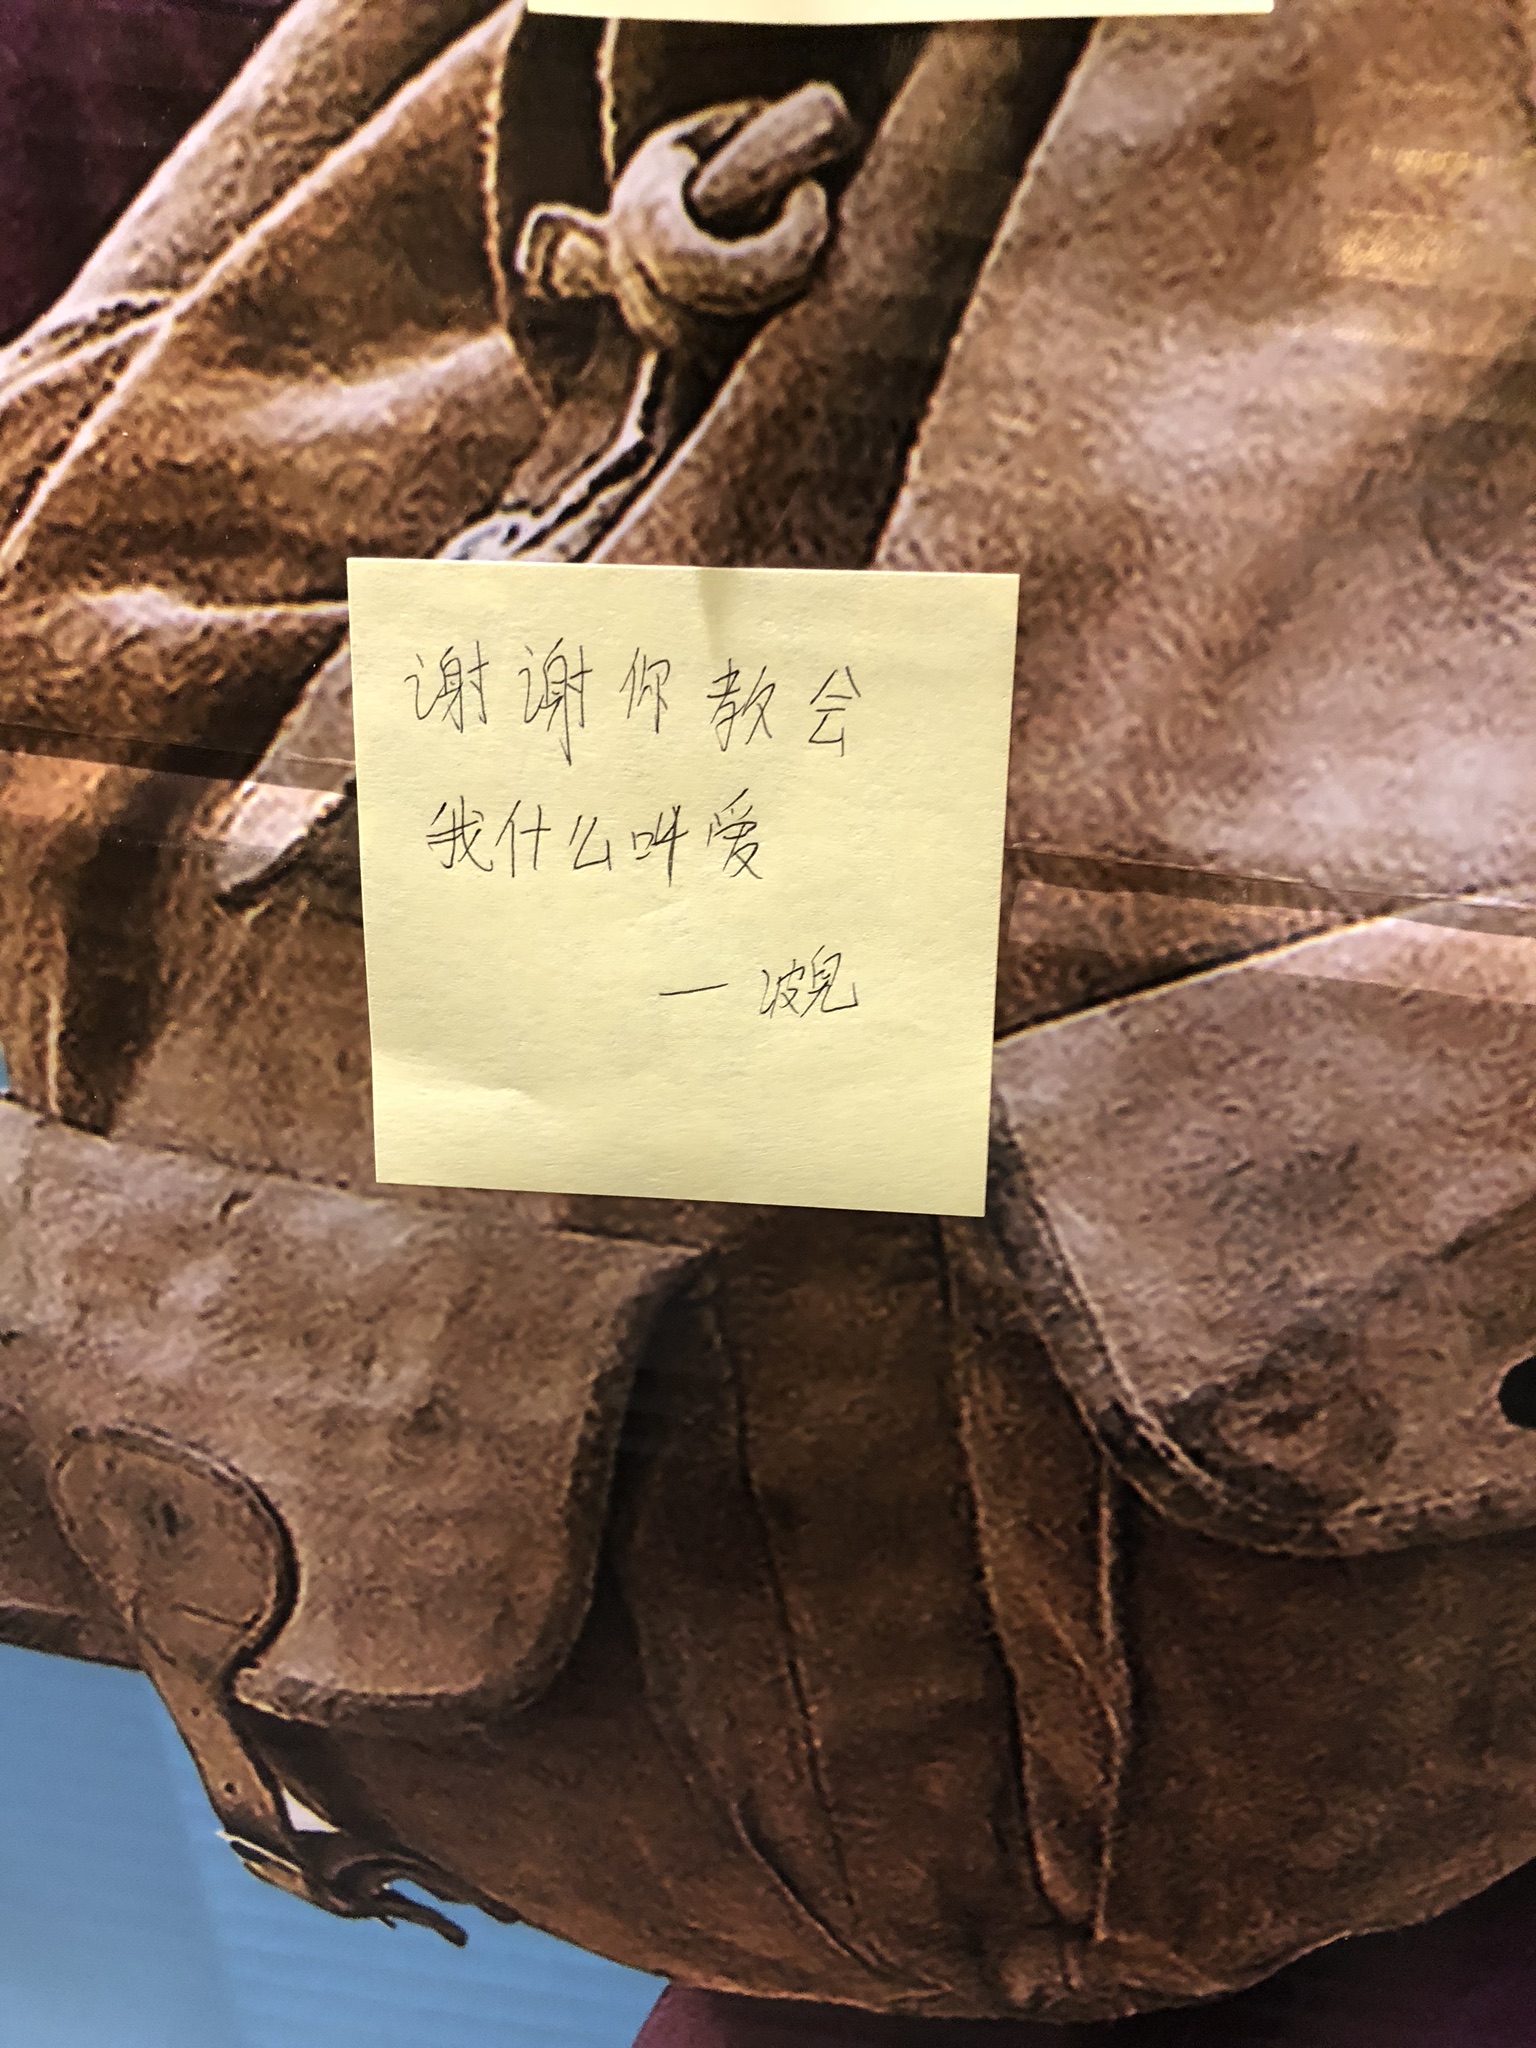 谢谢你教会
我什么叫爱
— 波兒